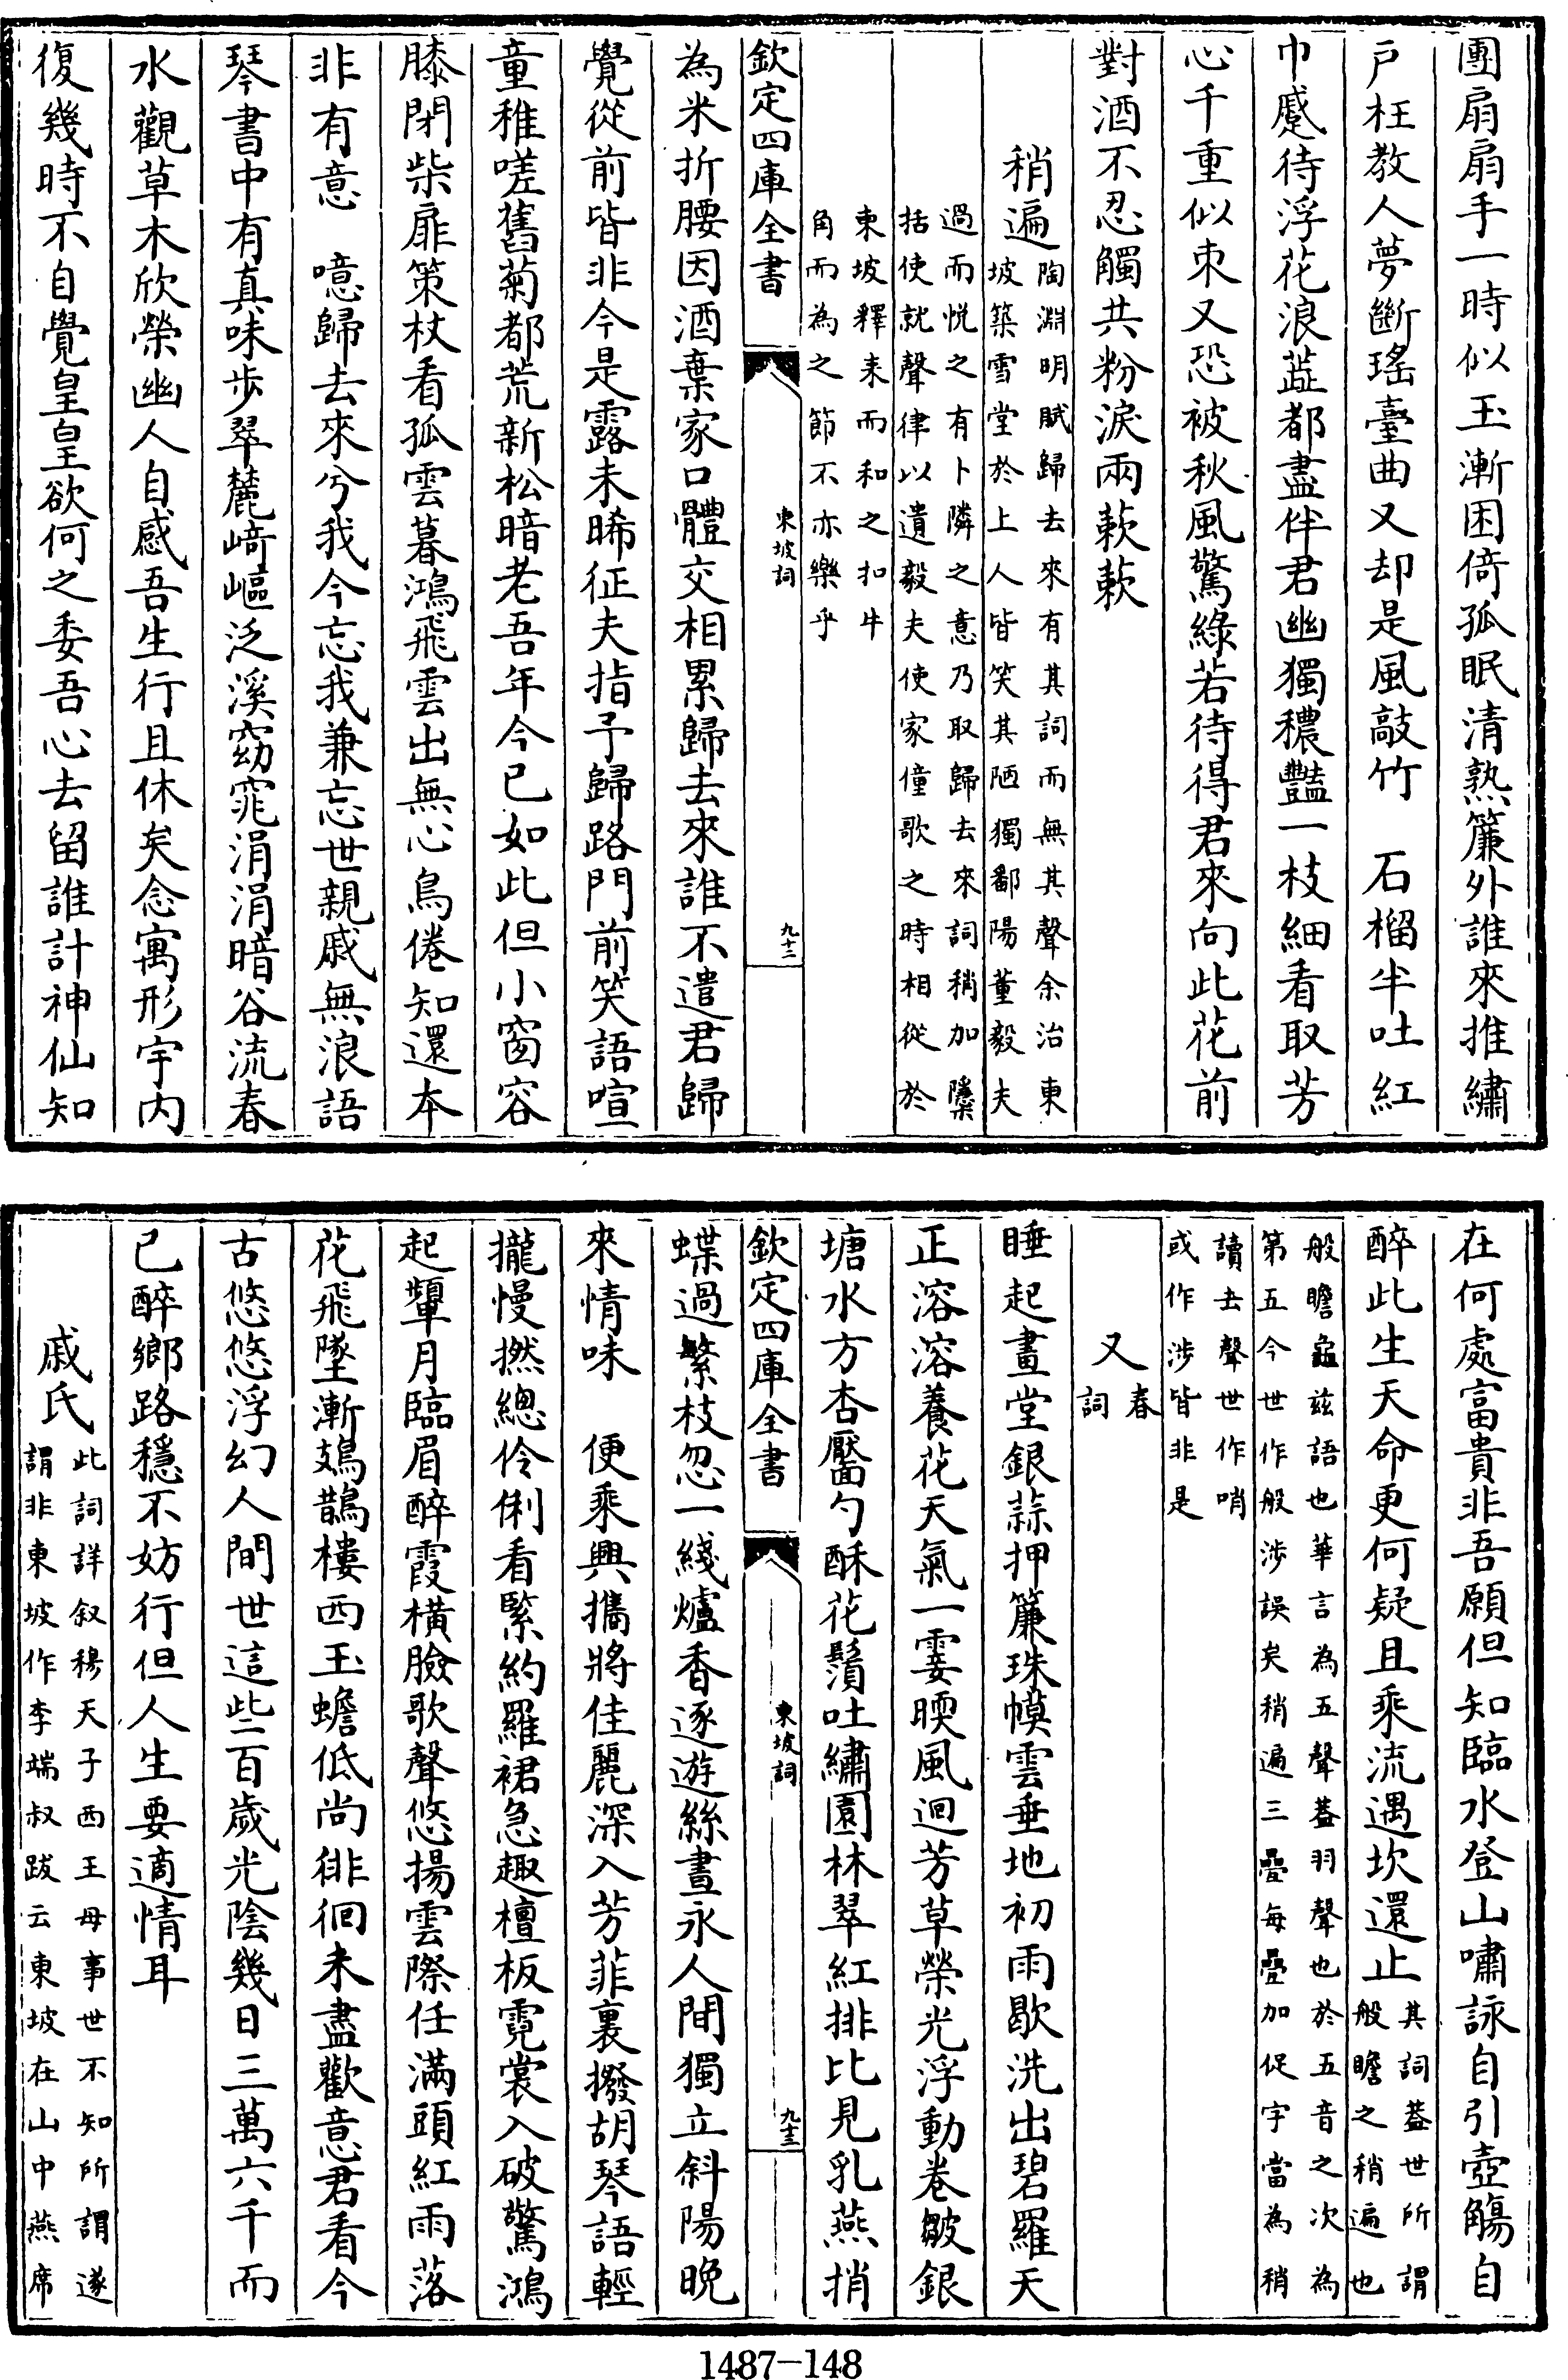 團扇扇手一時似玉漸困倚孤眠清熟簾外誰來推繡
戶枉教人夢斷瑤臺曲又却是風敲竹　石榴半吐紅
巾蹙待浮花浪蕋都盡伴君幽獨穠豔一枝細看取芳
心千重似束又恐被秋風驚綠若待得君來向此花前
對酒不忍觸共粉淚兩蔌蔌
稍遍
陶淵明賦歸去來有其詞而無其聲余治東
坡築雪堂於上人皆笑其陋獨鄱陽董毅夫
過而悅之有卜隣之意乃取歸去來詞稍加隱
括使就聲律以遺毅夫使家僮歌之時相從於
東坡釋耒而和之扣牛
角而為之節不亦樂乎
欽定四庫全書
東坡詞
九十二
為米折腰因酒棄家口體交相累歸去來誰不遣君歸
覺從前皆非今是露未晞征夫指予歸路門前笑語喧
童稚嗟舊菊都荒新松暗老吾年今已如此但小窗容
膝閉柴扉策杖看孤雲暮鴻飛雲出無心鳥倦知還本
非有意　噫歸去來兮我今忘我兼忘世親戚無浪語
琴書中有真味步翠麓崎嶇泛溪窈窕涓涓暗谷流春
水觀草木欣榮幽人自感吾生行且休矣念寓形宇內
復幾時不自覺皇皇欲何之委吾心去留誰計神仙知
在何處富貴非吾願但知臨水登山嘯詠自引壺觴自
醉此生天命更何疑且乘流遇坎還止
其詞葢世所謂
般瞻之稍遍也
般瞻龜兹語也華言為五聲葢羽聲也於五音之次為
第五今世作般涉誤矣稍遍三疊每疊加促字當為稍
讀去聲世作哨
或作涉皆非是
又
春
詞
睡起畫堂銀蒜押簾珠幙雲垂地初雨歇洗出碧羅天
正溶溶養花天氣一霎暖風迴芳草榮光浮動卷皺銀
塘水方杏靨勻酥花鬚吐繡園林翠紅排比見乳燕捎
欽定四庫全書
東坡詞
九十三
蝶過繁枝忽一綫爐香逐遊絲晝永人間獨立斜陽晚
來情味　便乘興攜將佳麗深入芳菲裏撥胡琴語輕
攏慢撚總伶俐看緊約羅裙急趣檀板霓裳入破驚鴻
起顰月臨眉醉霞橫臉歌聲悠揚雲際任滿頭紅雨落
花飛墜漸鳷鵲樓西玉蟾低尚徘徊未盡歡意君看今
古悠悠浮幻人間世這些百歲光陰幾日三萬六千而
已醉鄉路穩不妨行但人生要適情耳
戚氏
此詞詳叙穆天子西王母事世不知所謂遂
謂非東坡作李端叔跋云東坡在山中燕席
1487-148